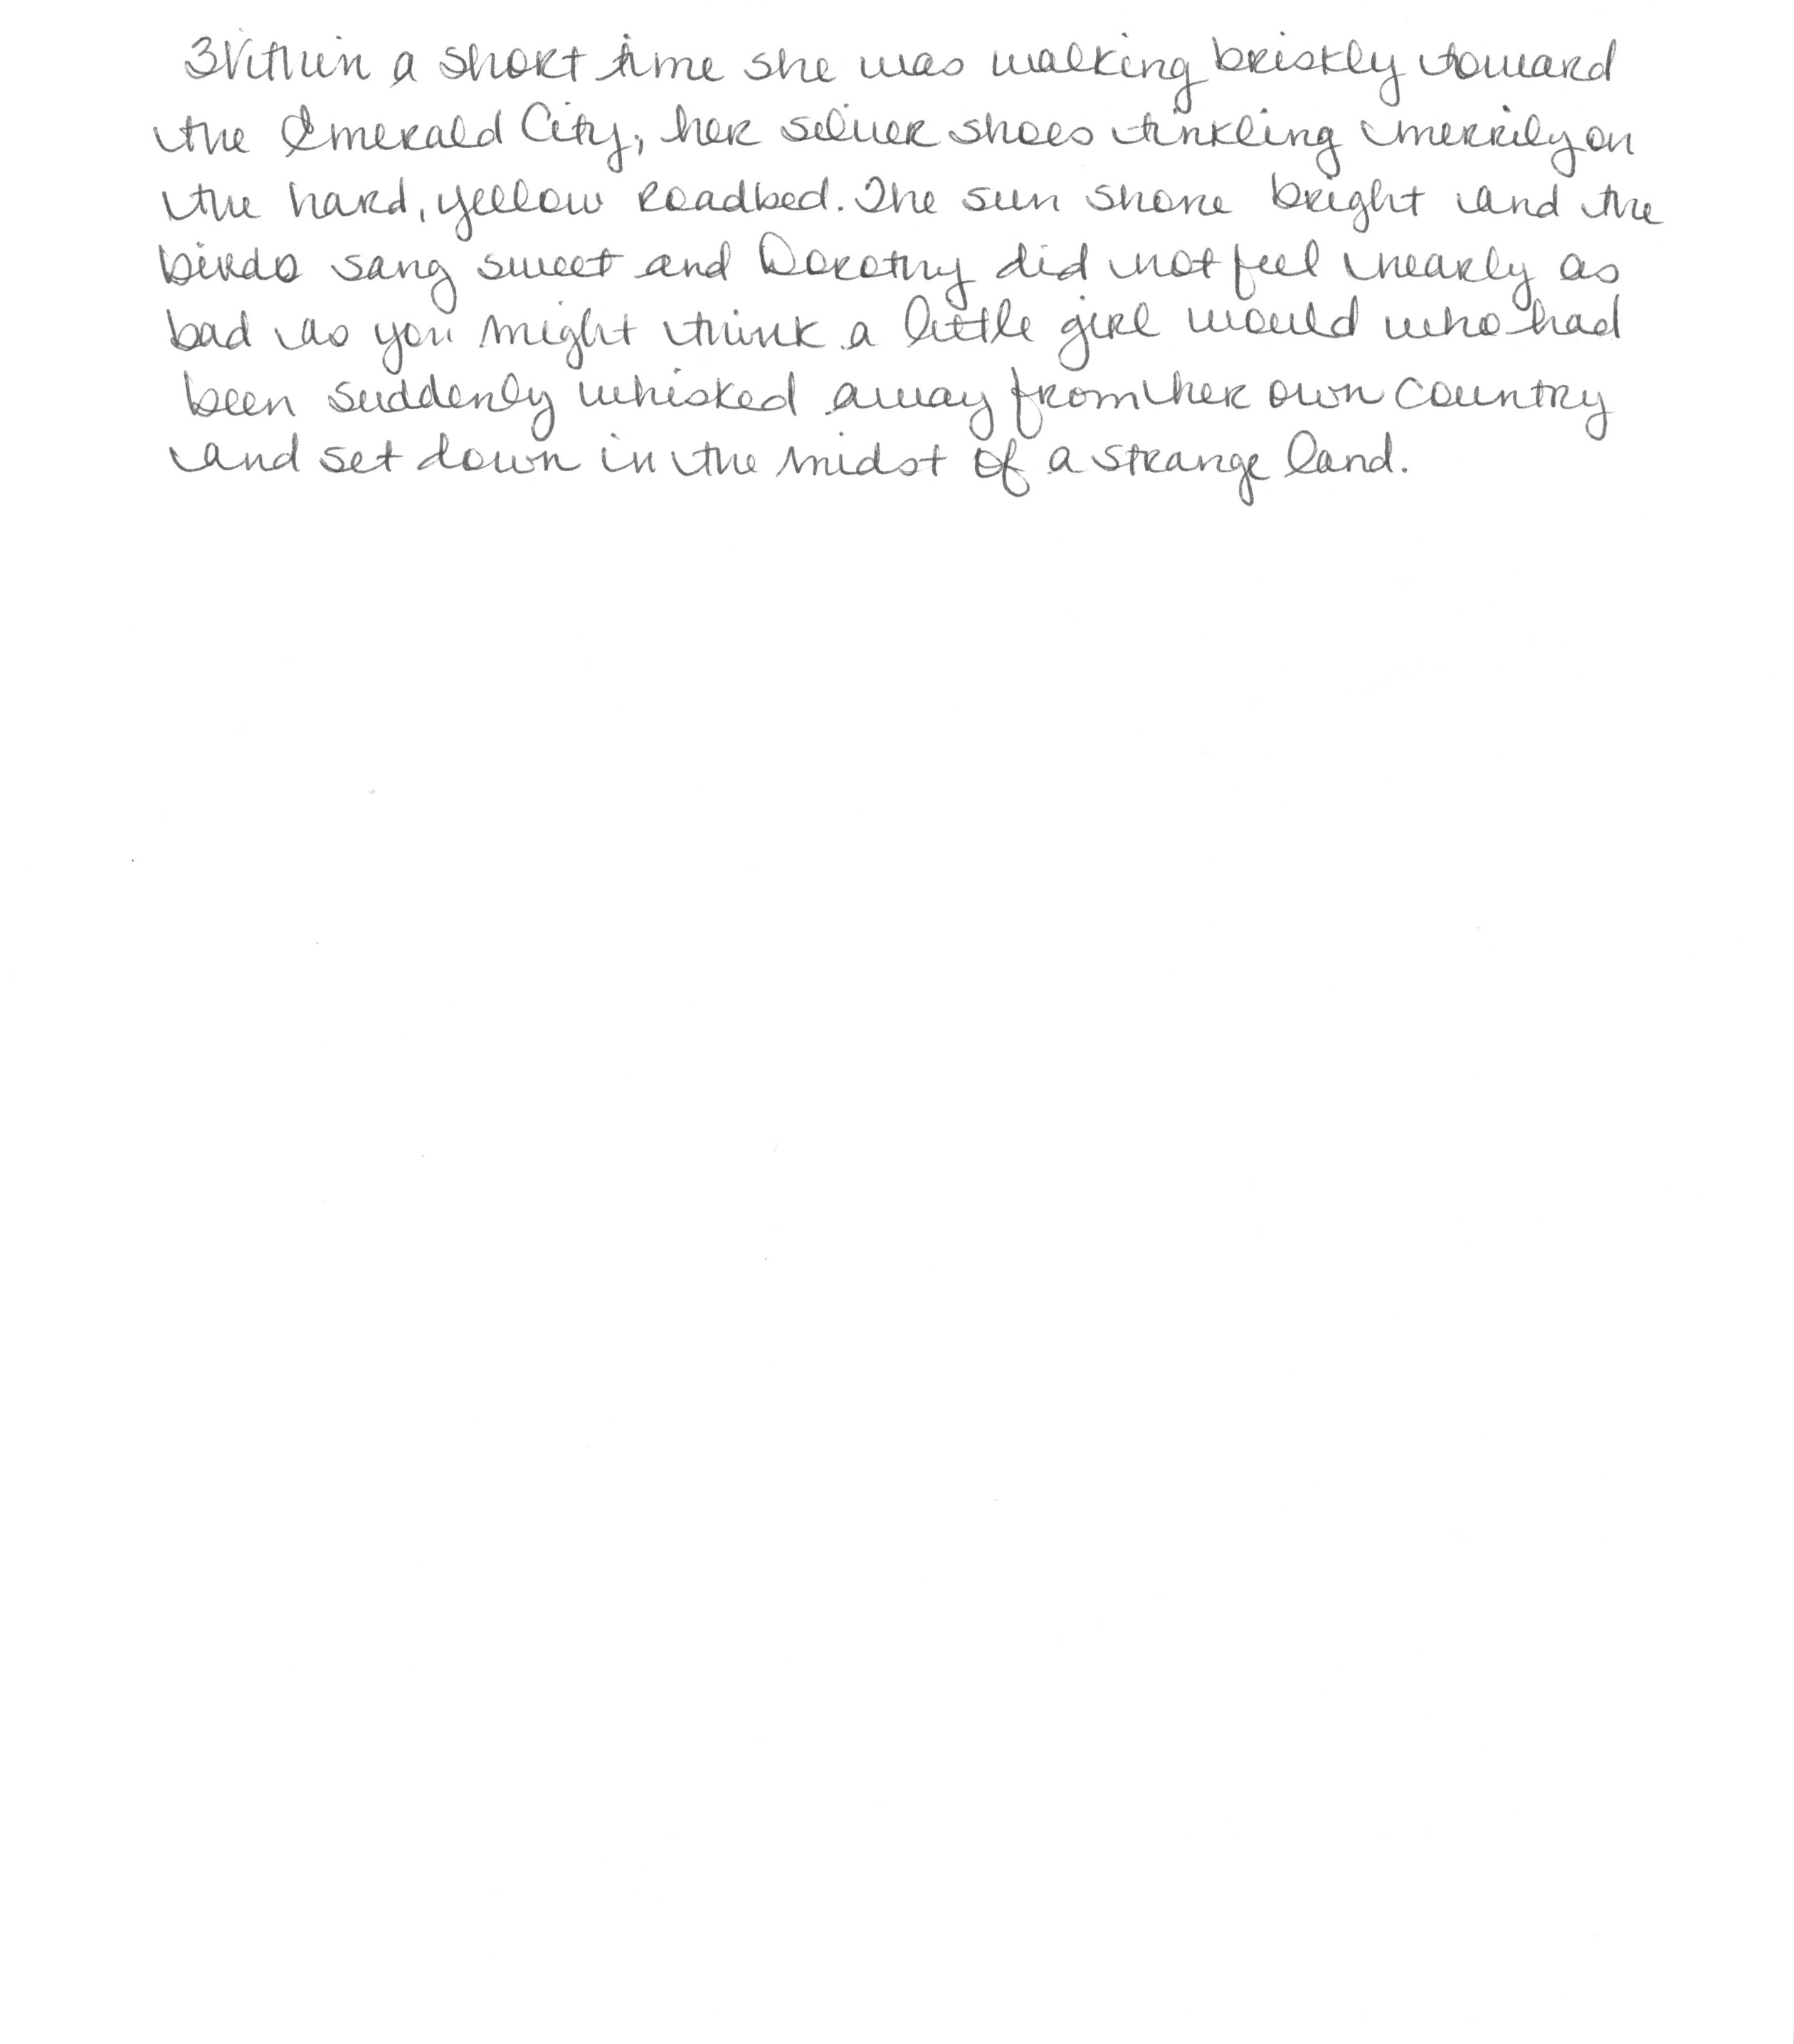 Within a short time she was walking briskly toward
the Emerald City, her silver shoes tinkling merrily on
the hard, yellow roadbed. The sun shone bright and the
birds sang sweet and Dorothy did not feel nearly as
bad as you might think a little girl would who had
been suddenly whisked away from her own country
and set down in the midst of a strange land.